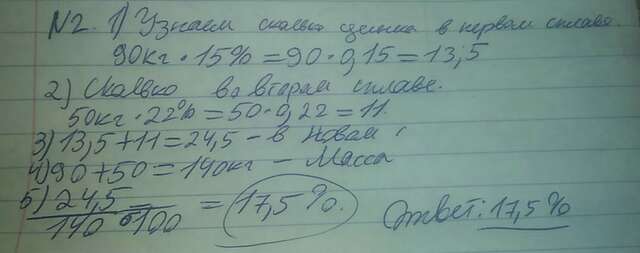 N2. 1) Узнаем сколько цинка в первом сплаве.
90кг · 15% = 90 · 0,15 = 13,5
2) Сколько во втором сплаве.
50кг · 22% = 50 · 0,22 = 11.
3) 13,5 + 11 = 24,5 – в новом
4) 90 + 50 = 140кг – Масса
5) 24,5 / 140 · 100 = 17,5%.
Ответ: 17,5%